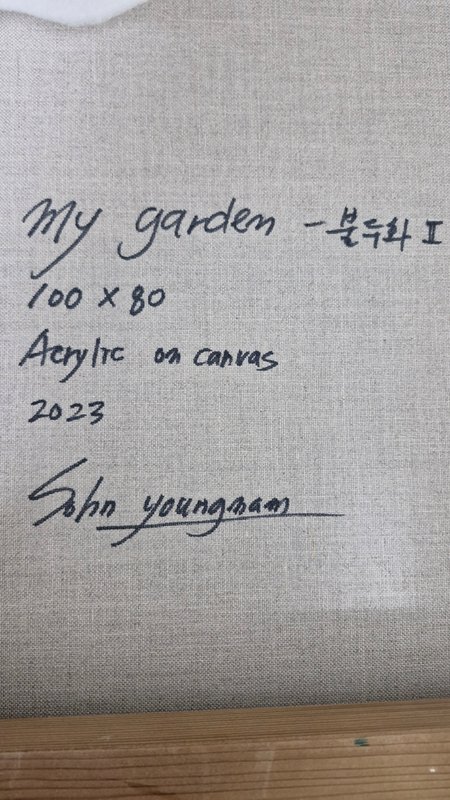 My garden - 불두화 II
100 x 80
Acrylic on canvas
2023
Sohn youngnam